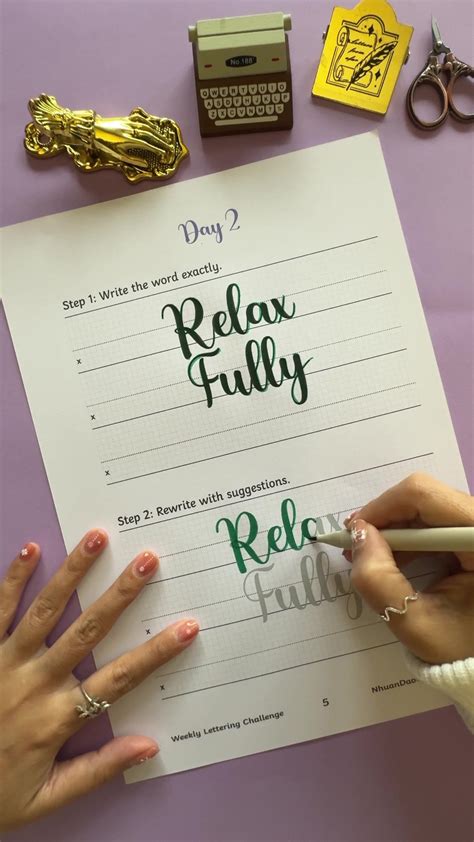 No.188
QWERTYUIOP
Day 2
Step 1: Write the word exactly.
Relax
x
Fully
x
x
Step 2: Rewrite with suggestions.
Relax
x
Fully
x
x
Weekly Lettering Challenge
5
NhuanDao